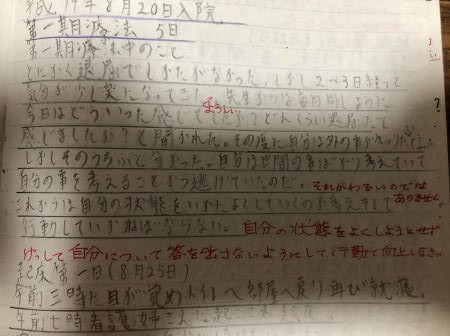 平成19年8月20日入院
第一期療法 5日
第一期療 中のこと
とにかく退屈でしかたがなかった。しかし2〜3日経つと
気分が少し楽になってきた。先生からは毎日同じように
よろしい
今日はどういった感じで か？どれくらい退屈だと
感じましたか？と聞かれた。その度に自分は外の事が
しかしそのうちふと分かった。自分は世間の事ばかり考えていて
自分の事を考えることから逃げていたのだ。それがわるいのでは
ありません。
これからは自分の状態をいかによくしていくのか考えをして
行動していかねばならない。自分の状態をよくしようとせず
けっして自分について答を出さないようにして、行動で向上しなさい
起床第一日(8月25日)
午前三時に目が覚めトイレへ 部屋へ戻り再び就寝。
午前七時看護婦さんに起こされ起床。